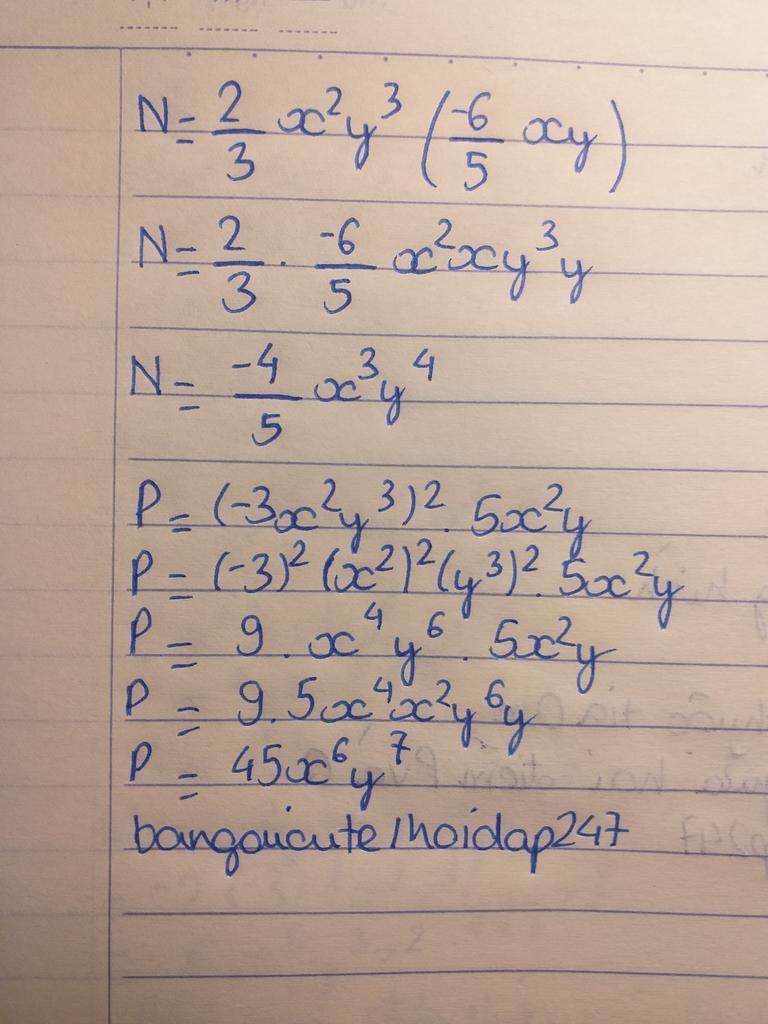 N = 2/3 x²y³ (-6/5 xy)
N = 2/3 . -6/5 x²xy³y
N = -4/5 x³y⁴
P = (-3x²y³)² . 5x²y
P = (-3)² (x²)² (y³)² . 5x²y
P = 9 . x⁴y⁶ . 5x²y
P = 9.5x⁴x²y⁶y
P = 45x⁶y⁷
bangaicute/hoidap247